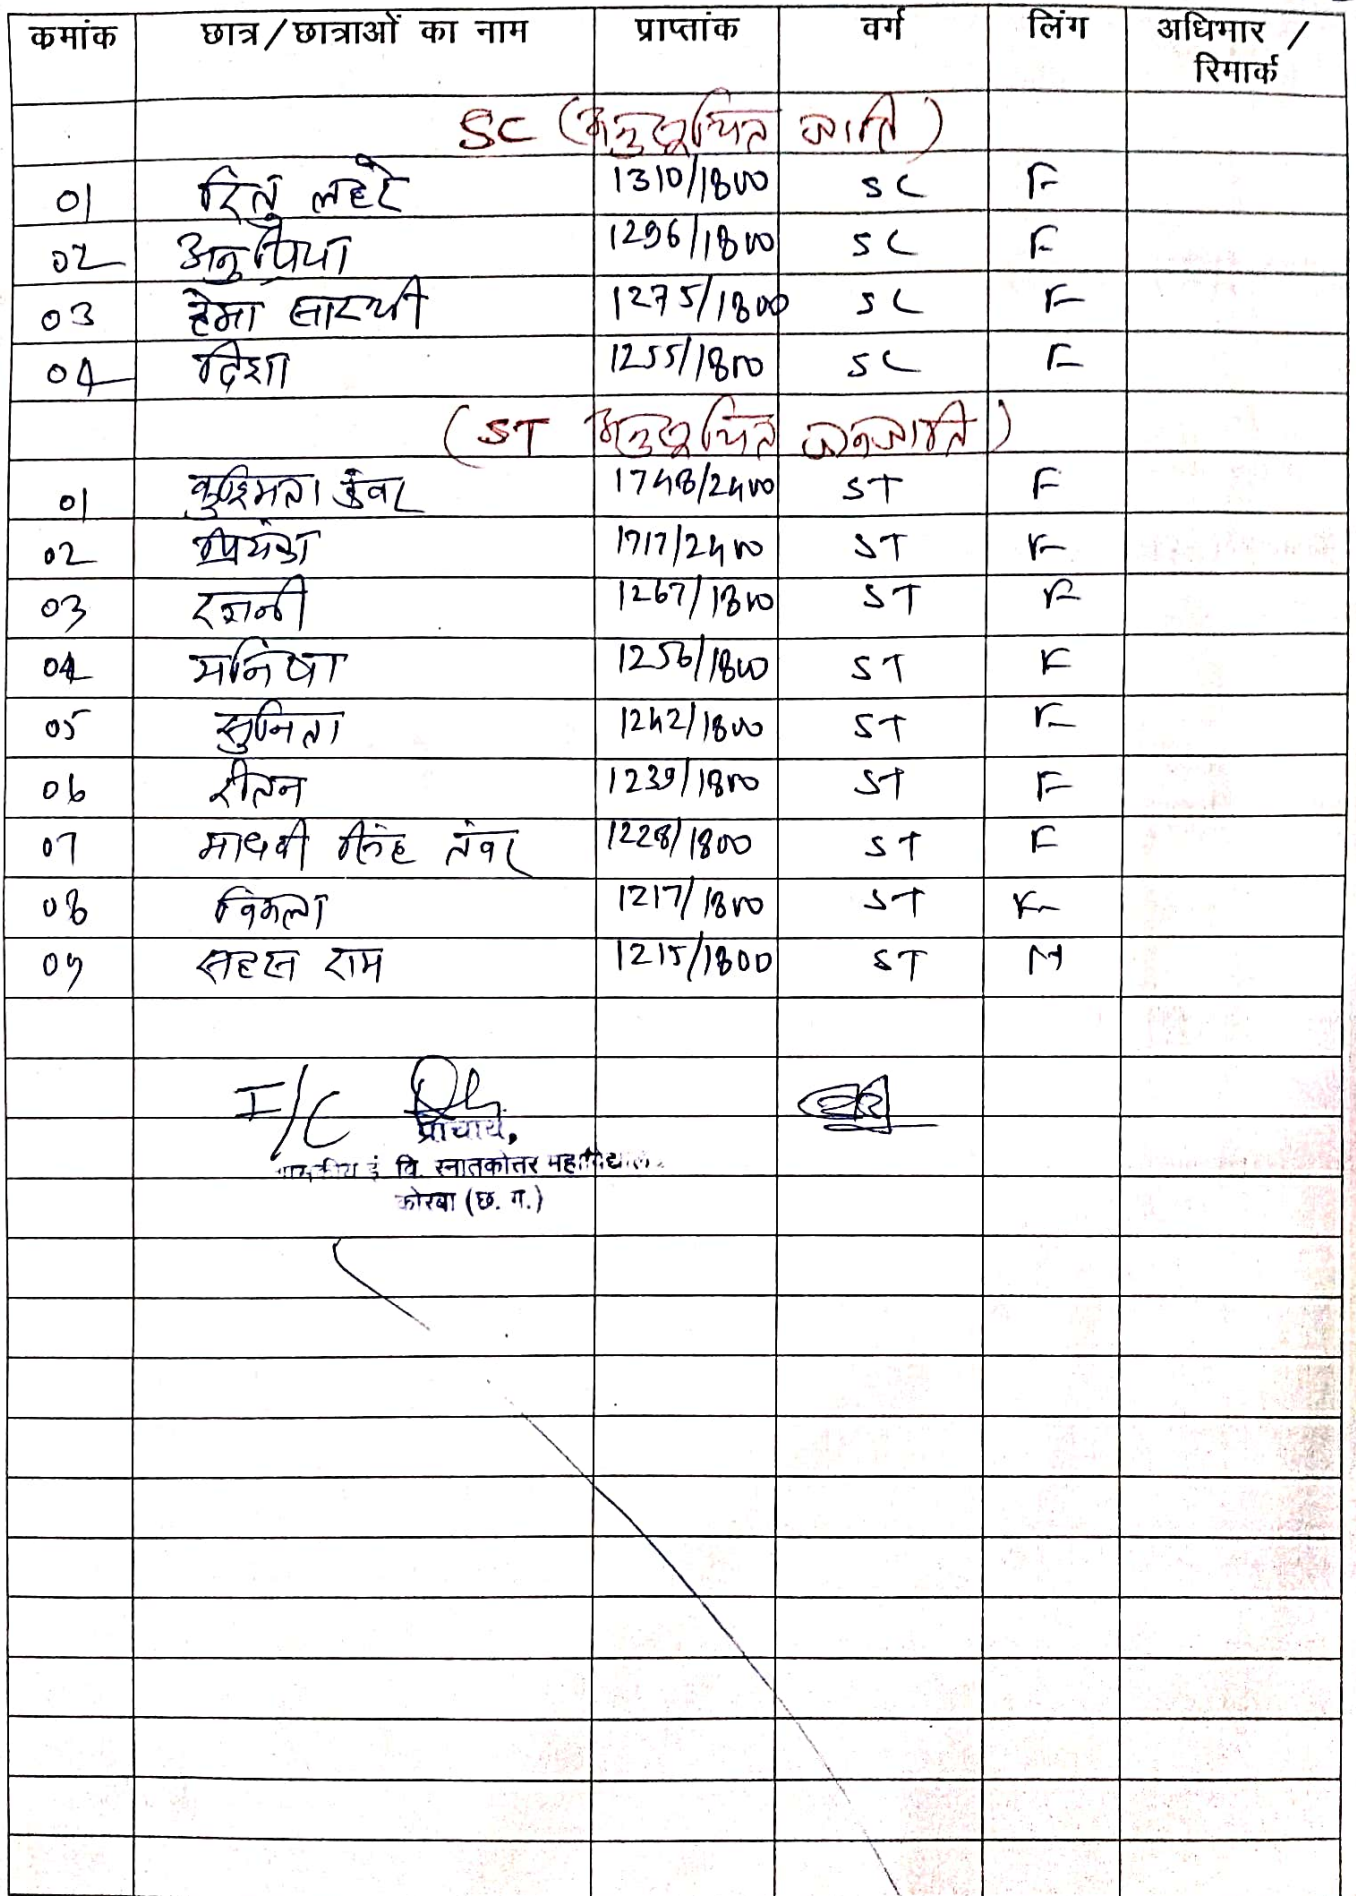 कमांक छात्र/छात्राओं का नाम प्राप्तांक वर्ग लिंग अधिभार /
रिमार्क
SC (अनुसूचित जाति)
01 रितु लहरे 1310/1800 SC F
02 अनुप्रिया 1296/1800 SC F
03 हेमा सारथी 1275/1800 SC F
04 दिशा 1255/1800 SC F
(ST अनुसूचित जनजाति)
01 कुंवर 1748/2400 ST F
02 प्रियंका 1717/2400 ST F
03 रजनी 1267/1800 ST F
04 मनिषा 1256/1800 ST F
05 सुनिता 1242/1800 ST F
06 1239/1800 ST F
07 माधवी सिंह तंवर 1228/1800 ST F
08 विमला 1217/1800 ST F
09 सहस राम 1215/1800 ST M
I/C
प्राचार्य,
वि. स्नातकोत्तर
कोरबा (छ. ग.)